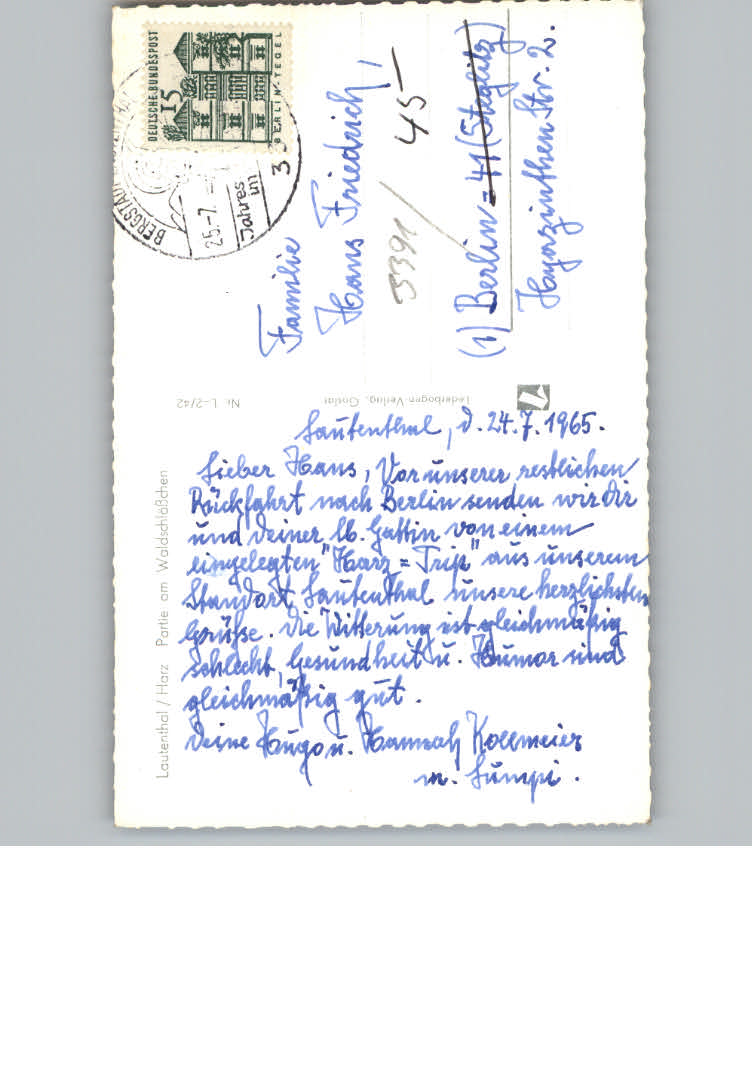 Lautenthal, d. 24.7.1965.
Lieber Hans, Vor unserer restlichen
Rückfahrt nach Berlin senden wir Dir
und Deiner lb. Gattin von einem
eingelegten "Harz = Trip" aus unserem
Standort Lautenthal unsere herzlichsten
Grüße. Die Witterung ist gleichmäßig
schlecht, Gesundheit u. Humor sind
gleichmäßig gut.
Deine Hugo u. Hannah Kollmeier
m. Lumpi.
Lautenthal / Harz Partie am Waldschlößchen
Nr. L-2/42
Lederbogen-Verlag, Goslar
Familie
Hans Friedrich,
3391 / 45-
(1) Berlin = 41 (Steglitz)
Hyazinthenstr. 2.
DEUTSCHE BUNDESPOST
15
BERLIN-TEGEL
BERGSTADT
25.-7.
Jahres
im
3